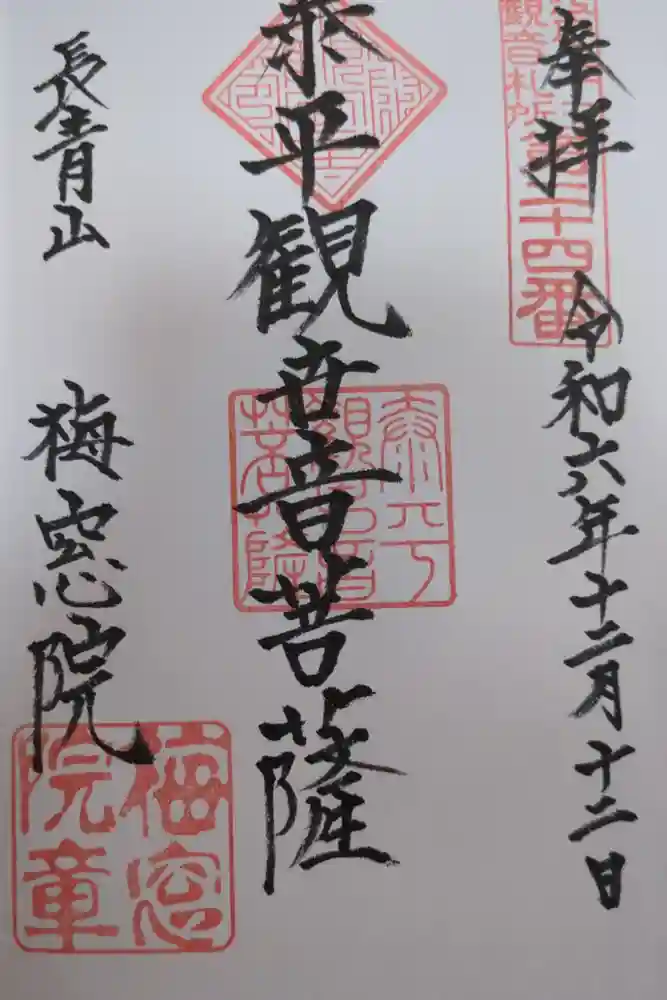 奉拝 令和六年十二月十二日
観音札所
第二十四番
泰平観世音菩薩
泰平
観世音
菩薩
長青山 梅窓院
梅窓
院章